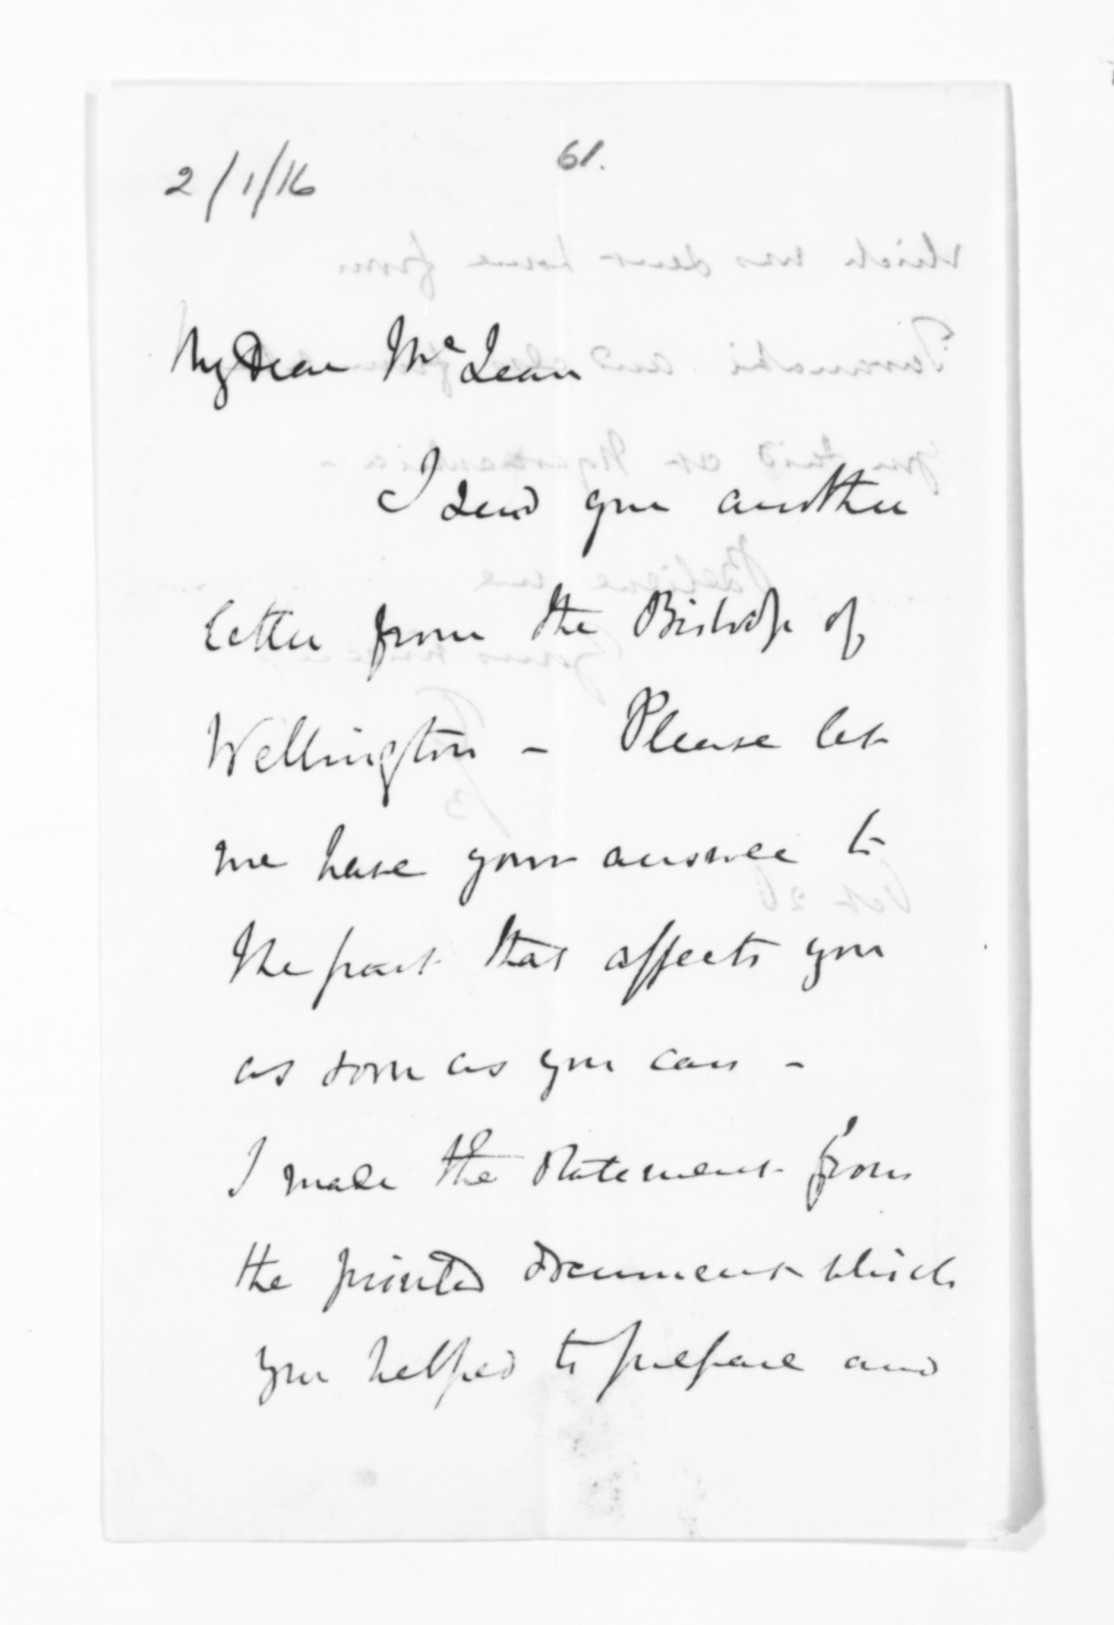 2/1/16
61.
My Dear McLean
I send you another
letter from the Bishop of
Wellington - Please let
me have your answer to
the part that affects you
as soon as you can -
I made the statement from
the printed document which
you helped to prepare and